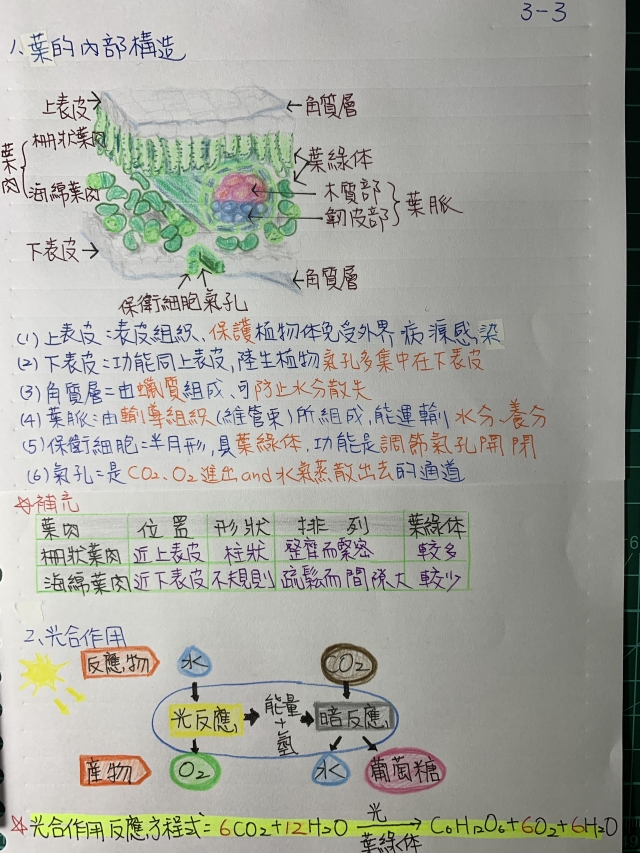 3-3
1、葉的內部構造
上表皮
角質層
柵狀葉肉
葉肉
葉綠體
海綿葉肉
木質部
韌皮部
葉脈
下表皮
角質層
保衛細胞 氣孔
(1) 上表皮:表皮組織、保護植物体免受外界病源感染
(2) 下表皮:功能同上表皮,陸生植物氣孔多集中在下表皮
(3) 角質層:由蠟質組成、可防止水分散失
(4) 葉脈:由輸導組織(維管束)所組成,能運輸水分、養分
(5) 保衛細胞:半月形,具葉綠体,功能是調節氣孔開閉
(6) 氣孔:是CO2、O2進出and水氣蒸散出去的通道
☆補充
葉肉 位置 形狀 排列 葉綠体
柵狀葉肉 近上表皮 柱狀 整齊而緊密 較多
海綿葉肉 近下表皮 不規則 疏鬆而間隙大 較少
2、光合作用
反應物 水 CO2
光反應 能量+氫 暗反應
產物 O2 水 葡萄糖
☆光合作用反應方程式:6CO2+12H2O 光 葉綠体 C6H12O6+6O2+6H2O